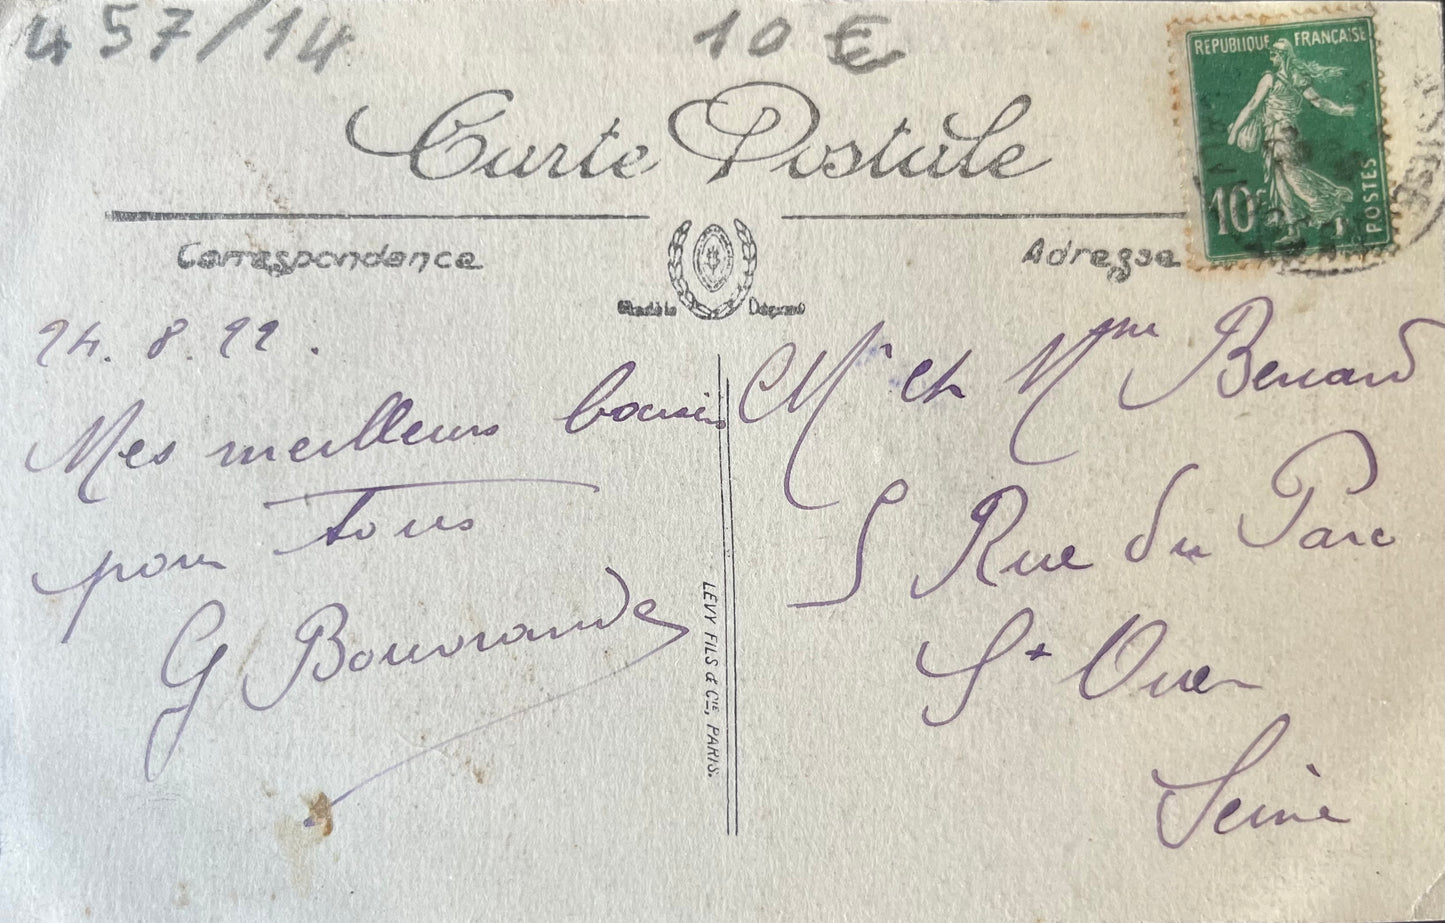 457/14
10 €
REPUBLIQUE FRANÇAISE
10c
POSTES
Carte Postale
Correspondance
Adresse
24.8.22.
Mes meilleurs baisers
pour tous
Mr et Mme Benard
5 Rue du Parc
St Ouen
Seine
LEVY FILS & CIE, PARIS.